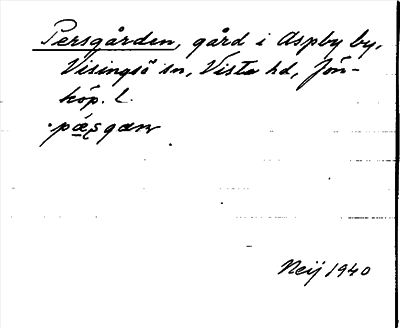 Persgården, gård i Aspby by,
Visingsö sn, Vista hd, Jön-
köp. l.
Neij 1940